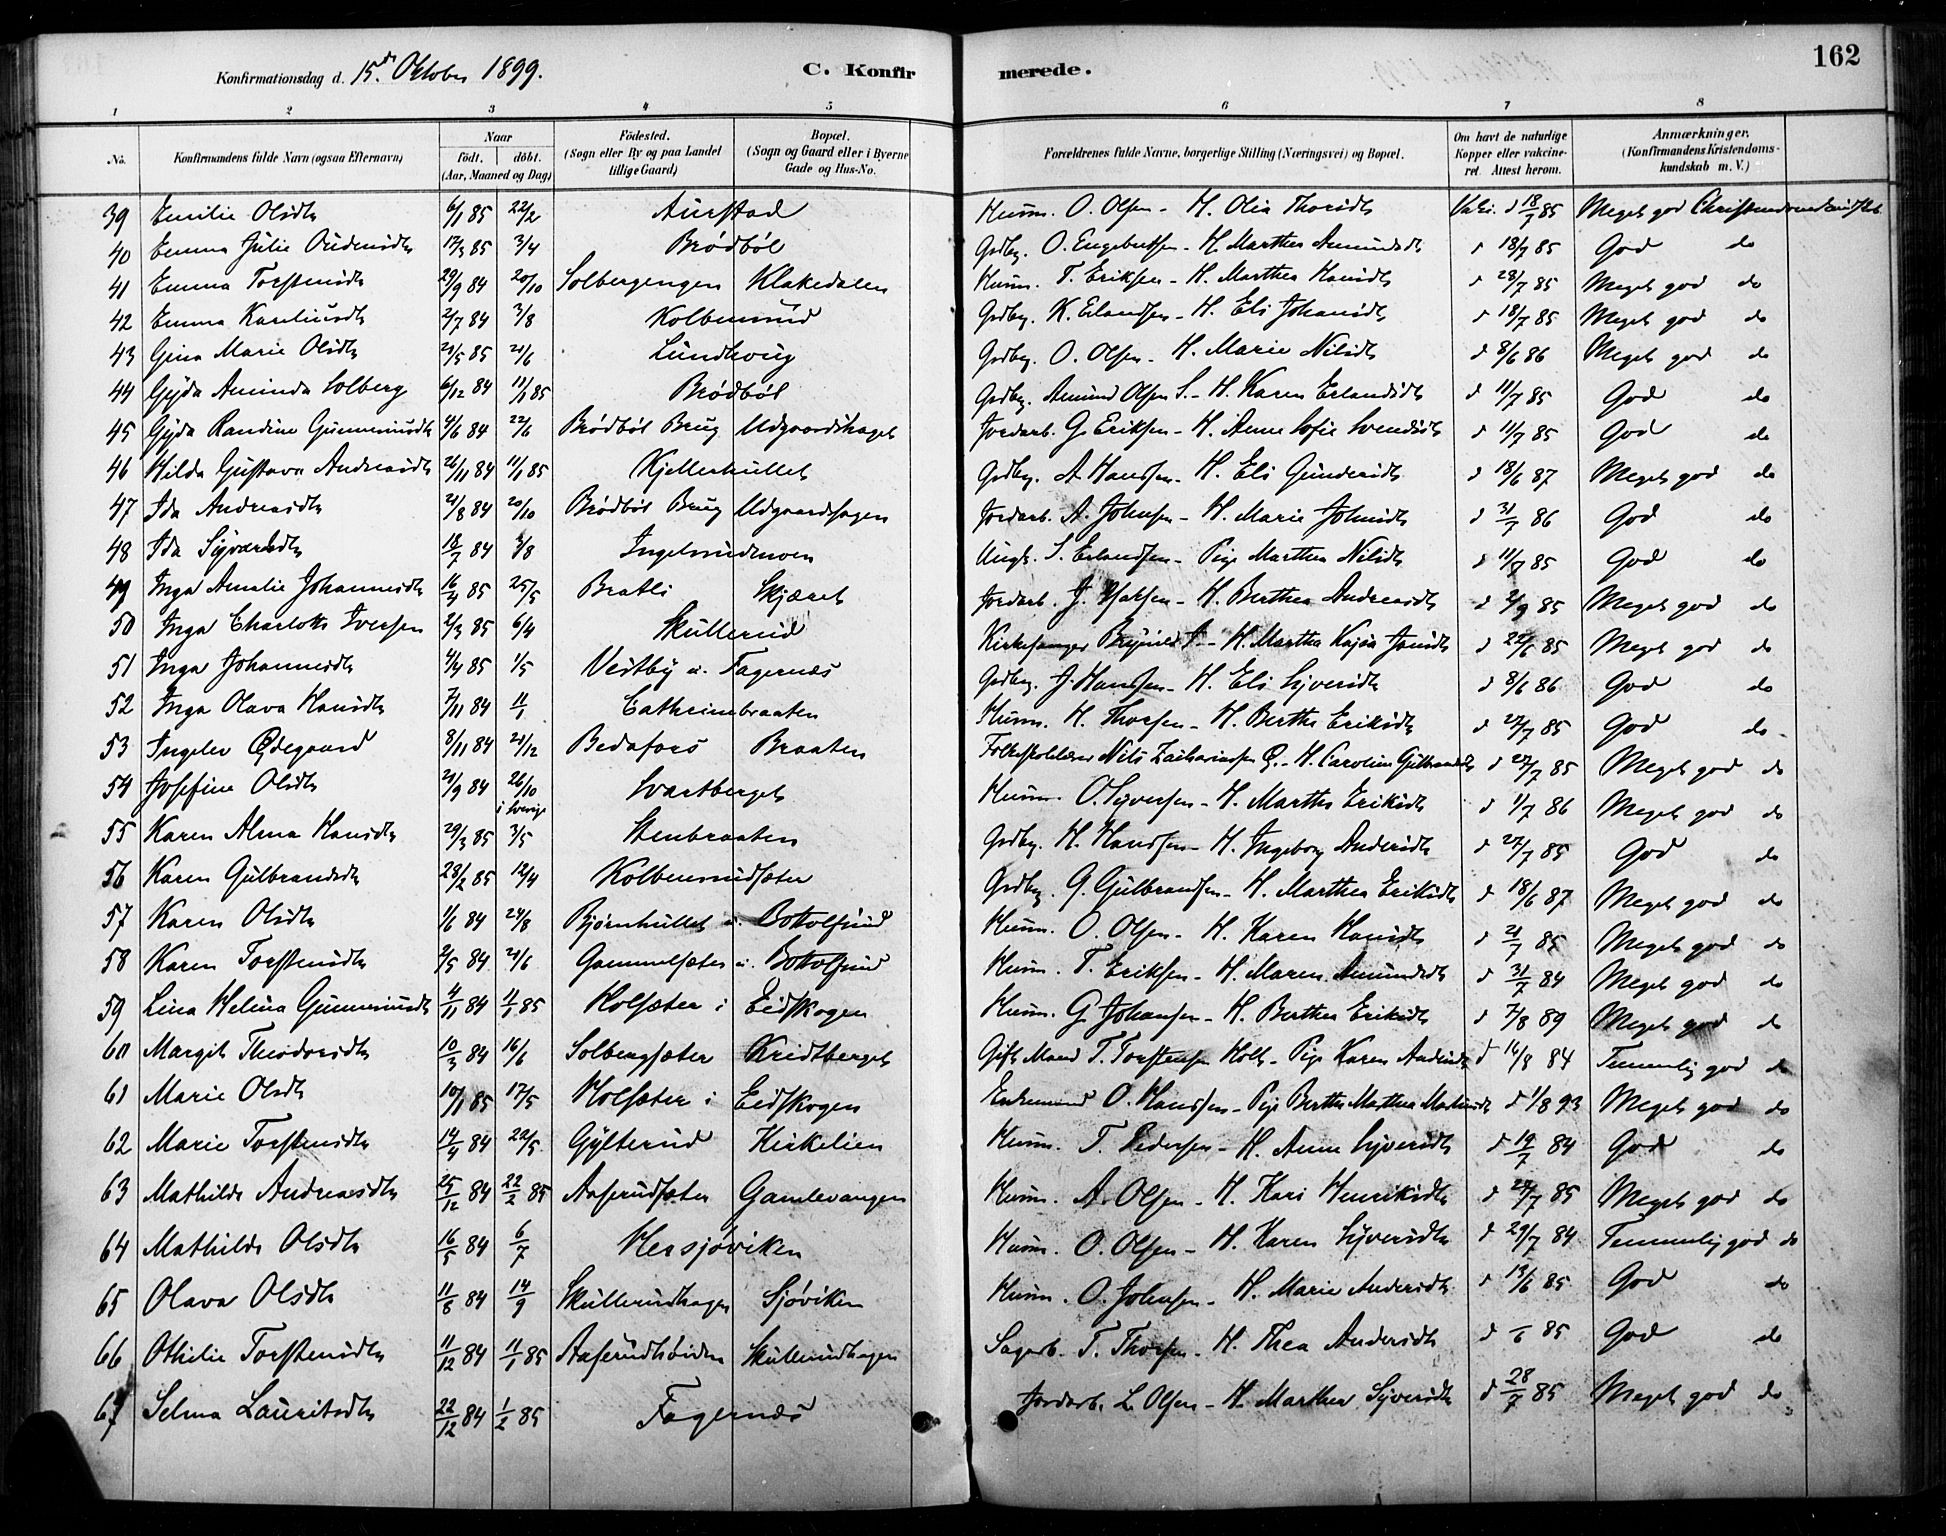 Konfirmationsdag d. 15de Oktober 1899. C. Konfirmerede. 162
1 2 3 4 5 6 7 8
No. Konfirmandens fulde Navn (ogsaa Efternavn) Naar født. døbt. (Aar, Maaned og Dag) Fødested. (Sogn eller By og paa Landet tillige Gaard) Bopæl. (Sogn og Gaard eller i Byerne Gade og Hus-No. Forældrenes fulde Navne, borgerlige Stilling (Næringsvei) og Bopæl. Om havt de naturlige Kopper eller vakcineret. Attest herom. Anmærkninger. (Konfirmandens Kristendomskundskab m. V.)
39 Emilie Olsdtr 6/1 85 22/2 Aurstad Husm. O. Olsen - H. Olia Thorsdtr Vakc. d 18/7 85 Meget god Christendomskundskab
40 Emma Julie Oudensdtr 17/3 85 3/4 Brødbøl Grdbr. O. Engebretsen - H. Marthea Amundsdtr d 18/7 85 God do
41 Emma Torstensdtr 29/9 84 20/10 Solbergengen Klakedalen Husm. T. Eriksen - H. Marthea Hansdtr d 28/7 85 Meget god do
42 Emma Kareliusdtr 2/7 84 3/8 Kolbensrud Grdbr. K. Erlandsen - H. Eli Johansdtr d 18/7 85 Meget god do
43 Gina Marie Olsdtr 21/5 85 21/6 Lundhoug Grdbr. O. Olsen - H. Marie Nilsdtr d 8/6 86 Meget god do
44 Gyda Aminda Solberg 6/12 84 11/1 85 Brødbøl Grdbr. Amund Olsen S. - H. Karen Erlandsdtr d 11/7 85 God do
45 Gyda Randine Gunneriusdtr 4/6 84 22/6 Brødbøl Brug Udgaardshaget Jordarb. G. Eriksen - H. Anne Sofie Svendsdtr d 11/7 85 God do
46 Hilda Gustava Andreasdtr 26/11 84 11/1 85 Kjellerhullet Grdbr. A. Hanssen - H. Eli Gundersdtr d 18/6 87 Meget god do
47 Ida Andreasdtr 21/8 84 20/10 Brødbøl Brug Udgaardshagen Jordarb. A. Johnsen - H. Marie Johnsdtr d 31/7 86 God do
48 Ida Syversdtr 18/7 84 3/8 Ingelsrudmoen Ungk. S. Erlandsen - Pige Marthea Nilsdtr d 11/7 85 God do
49 Inga Amalie Johannesdtr 16/4 85 25/5 Bratli Skjæret Jordarb. J. Isaksen - H. Berthea Andreasdtr d 2/9 85 Meget god do
50 Inga Charlotte Iversen 2/3 85 6/4 Skullerud Kirkesanger Brynild I - H. Martha Kajsa Jonsdtr d 22/6 85 Meget god do
51 Inga Johannesdtr 4/4 85 1/5 Vestby u. Fagernæs Grdbr. J. Hanssen - H. Eli Syversdtr d 8/6 86 God do
52 Inga Olava Hansdtr 7/11 84 11/1 Cathrinebraaten Husm. H. Thorsen - H. Berthe Eriksdtr d 27/7 85 God do
53 Ingelev Ødegaard 8/11 84 21/12 Bedafors Braaten Folkeskolelærer Nils Zachariassen Ø. - H. Caroline Gulbrandsdtr d 27/7 85 Meget god do
54 Josefine Olsdtr 21/9 84 26/10 i Sverige Svartberget Husm. O. Syversen - H. Marthe Eriksdtr d 1/7 86 Meget god do
55 Karen Alma Hansdtr 29/3 85 3/5 Stenbraaten Grdbr. H. Hanssen - H. Ingeborg Andersdtr d 27/7 85 God do
56 Karen Gulbrandsdtr 28/2 85 12/4 Kolbensrudsæter Grdbr. G. Gulbrandsen - H. Marthea Eriksdtr d 18/6 87 Meget god do
57 Karen Olsdtr 1/6 84 24/8 Bjørnhullet u. Botolfsrud Husm. O. Olsen - H. Karen Hansdtr d 21/7 85 Meget god do
58 Karen Torstensdtr 2/5 84 21/6 Gammelsæter u. Botolfsrud Husm. T. Eriksen - H. Maren Amundsdtr d 31/7 84 Meget god do
59 Lina Helina Gunneriusdtr 4/11 84 11/1 85 Holsæter i Eidskogen Husm. G. Johansen - H. Berthea Eriksdtr d 7/8 89 Meget god do
60 Margit Theodorsdtr 10/3 84 16/6 Solbergsæter Kridtberget Gift Mand T. Torstensen Holt - Pige Karen Andersdtr d 16/8 84 Temmelig god do
61 Marie Olsdtr 10/1 85 17/5 Holsæter i Eidskogen Enkemand O. Hanssen - Pige Berthe Marthea Mathisdtr d 1/8 93 Meget god do
62 Marie Torstensdtr 14/4 84 22/5 Gylterud Kirkelien Husm. T. Pedersen - H. Anne Syversdtr d 19/7 84 God do
63 Mathilde Andreasdtr 25/12 84 22/2 85 Aaserudsæter Gamlevangen Husm. A. Olsen - H. Kari Henriksdtr d 28/7 85 Meget god do
64 Mathilde Olsdtr 16/5 84 6/7 Hersjøviken Husm. O. Olsen - H. Karen Syversdtr d 29/7 84 Temmelig god do
65 Olava Olsdtr 11/8 84 14/9 Skullerudhagen Sjøviken Husm. O. Johnsen - H. Marie Andersdtr d 13/6 85 God do
66 Othilie Torstensdtr 11/12 84 11/1 85 Aaserudhøiden Skullerudhagen Sagarb. T. Thorsen - H. Thea Andersdtr d /6 85 God do
67 Selma Lauritsdtr 22/12 84 1/2 85 Fagernæs Jordarb. L. Olsen - H. Marthea Syversdtr d 28/7 85 Meget god do